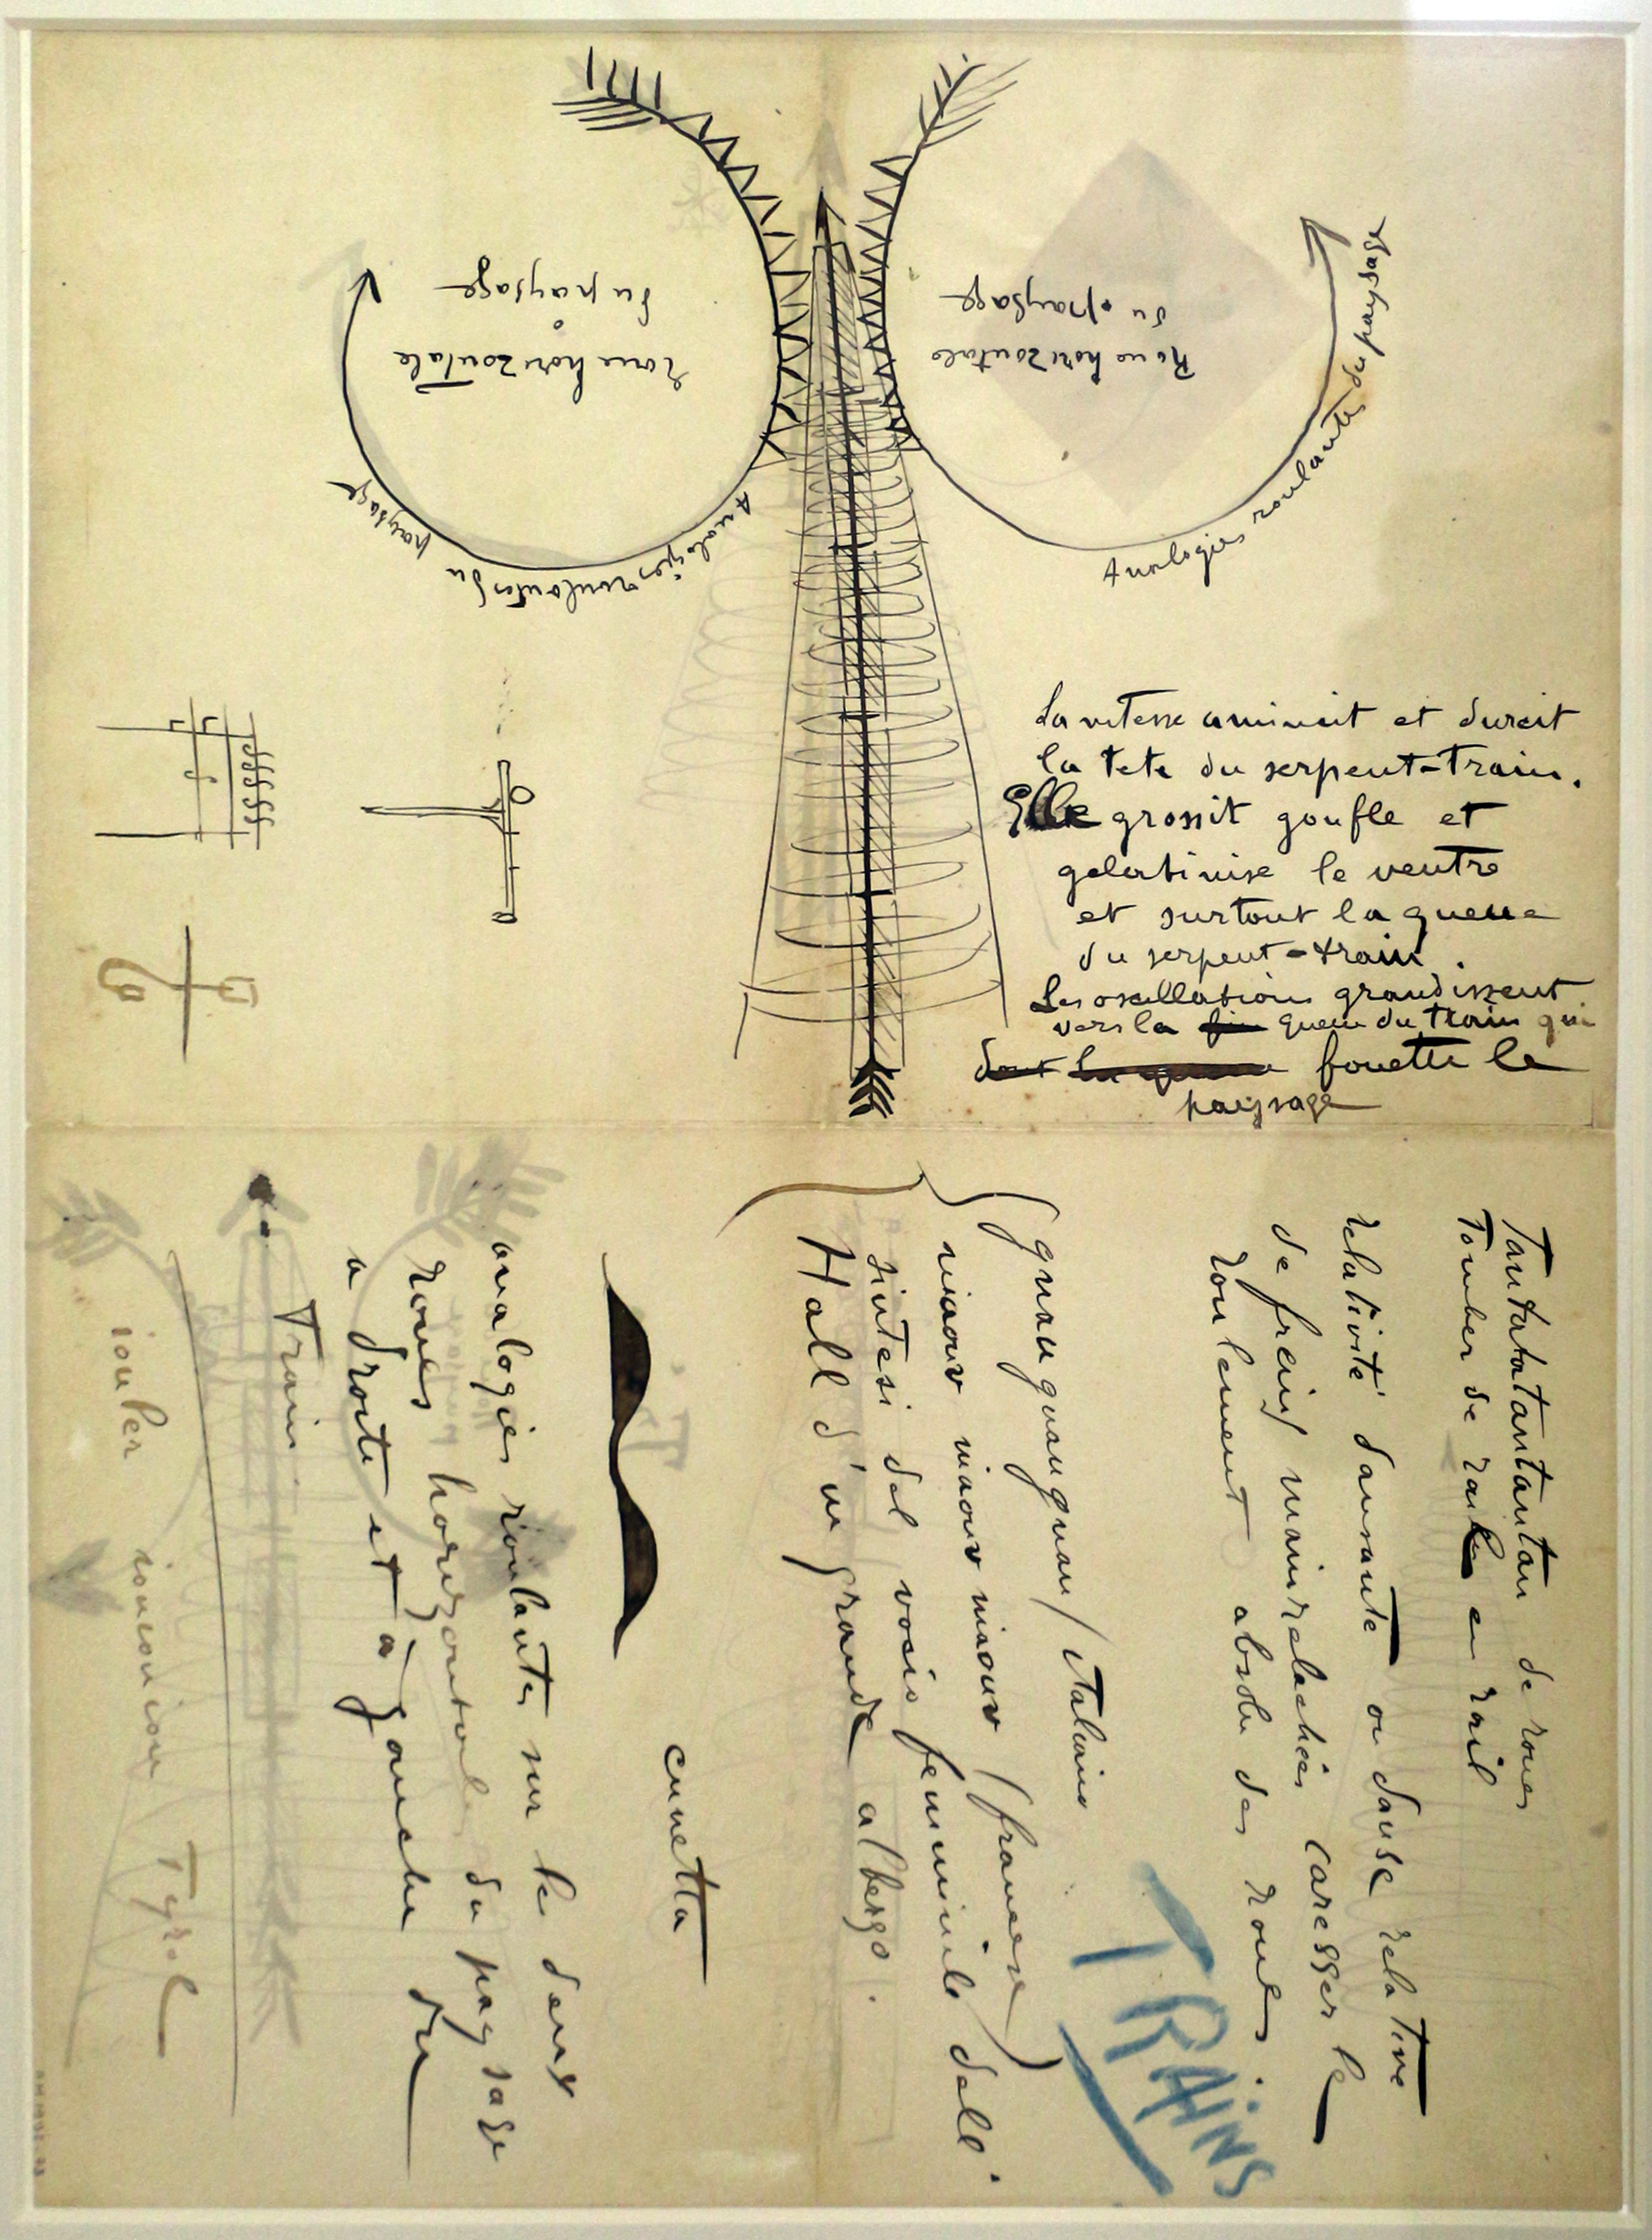 Roue horizontale
du paysage
Analogies roulantes du paysage
Roue horizontale
du paysage
Analogies roulantes du paysage
La vitesse amincit et durcit
la tete du serpent-train.
Elle grossit gonfle et
gelatinise le ventre
et surtout la queue
du serpent-train.
Les oscillations grandissent
vers la fin queue du train qui
dont la queue fouette le
paysage
Tantatatantantantan de roues
Tomber de rail en rail
relativité dansante ou danse relative
de freins mains relachées caresser le
roulement absolu des roues.
(gnau gnau gnau / italiano
miaour miaour miaour (francese)
sintesi del vocio femminile dell'
Hall d'un grande albergo.
TRAINS
cunetta
analogies roulantes sur les deux
roues horizontales du paysage
a droite et à gauche du
Train
Tyrol